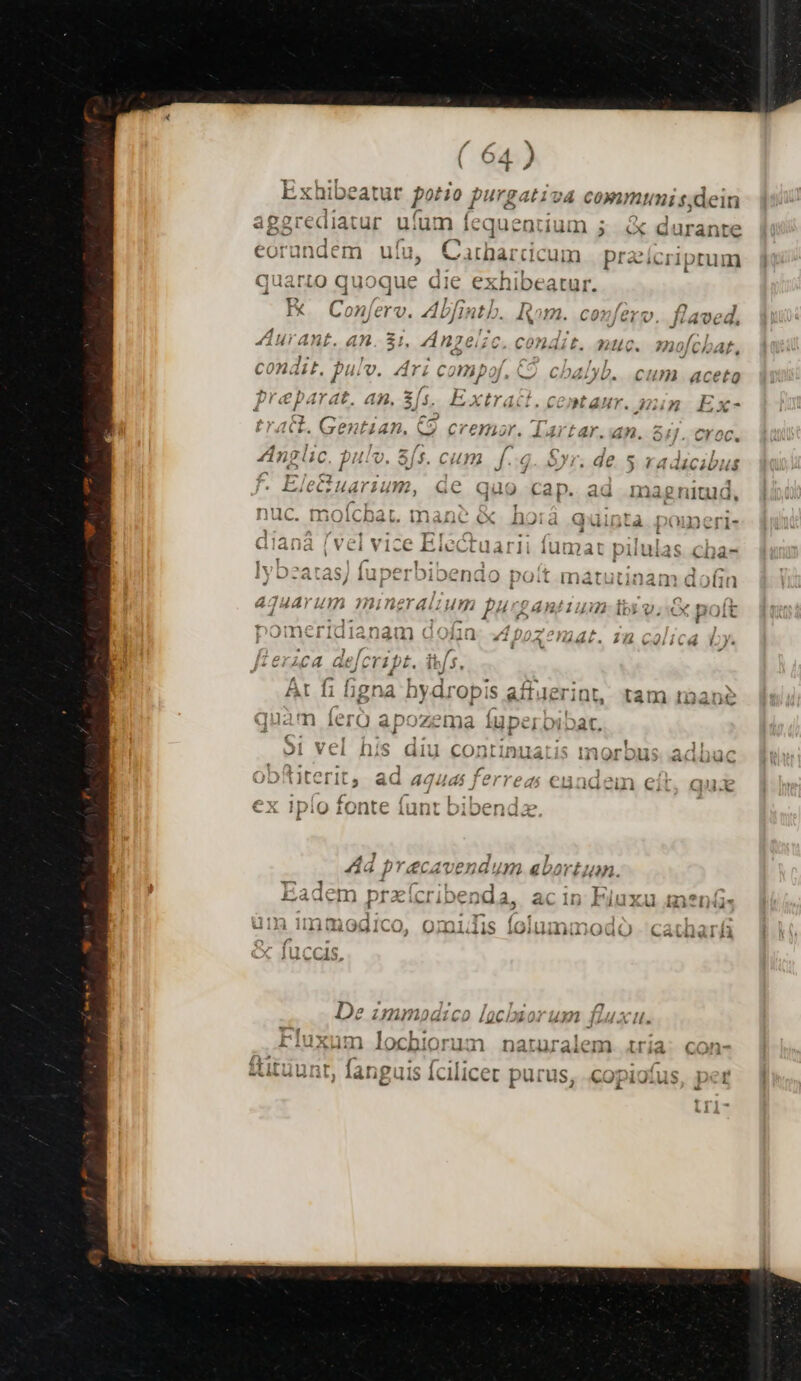 ( 64 )
Exhibeatur potio purgativa communis, dein
aggrediatur uſum ſequentium ; & durante
eorundem uſu, Catharticum præſcriptum
quarto quoque die exhibeatur.
℞ Conſerv. Abſinth. Rom. conſerv. flaved.
Aurant. an. ℥i. Angelic. condit. nuc. moſchat.
condit. pulv. Ari compoſ. & chalyb. cum aceto
præparat. an. ℥ſs. Extract. centaur. min Ex-
tract. Gentian. & cremor. Tartar. an. ʒij. croc.
Anglic. pulv. ʒſs. cum ſ. q. Syr. de 5 radicibus
f. Electuarium, de quo cap. ad magnitud.
nuc. moſchat. manè & horâ quinta pomeri-
dianâ [vel vice Electuarii ſumat pilulas cha-
lybeatas] ſuperbibendo poſt matutinam doſin
aquarum mineralium purgantium ℔ v. & poſt
pomeridianam doſin Apozemat. in colica hy-
ſterica deſcript. ℔ſs.
At ſi ſigna hydropis affuerint, tam manè
quàm ſerò apozema ſuperbibat.
Si vel his diu continuatis morbus adhuc
obſtiterit, ad aquas ferreas eundem eſt, quæ
ex ipſo fonte ſunt bibendæ.
Ad præcavendum abortum.
Eadem præſcribenda, ac in Fluxu menſi-
ùm immodico, omiſſis ſolummodò catharſi
& ſuccis.
De immodico lochiorum fluxu.
Fluxum lochiorum naturalem tria con-
ſtituunt, ſanguis ſcilicet purus, copioſus, per
tri-